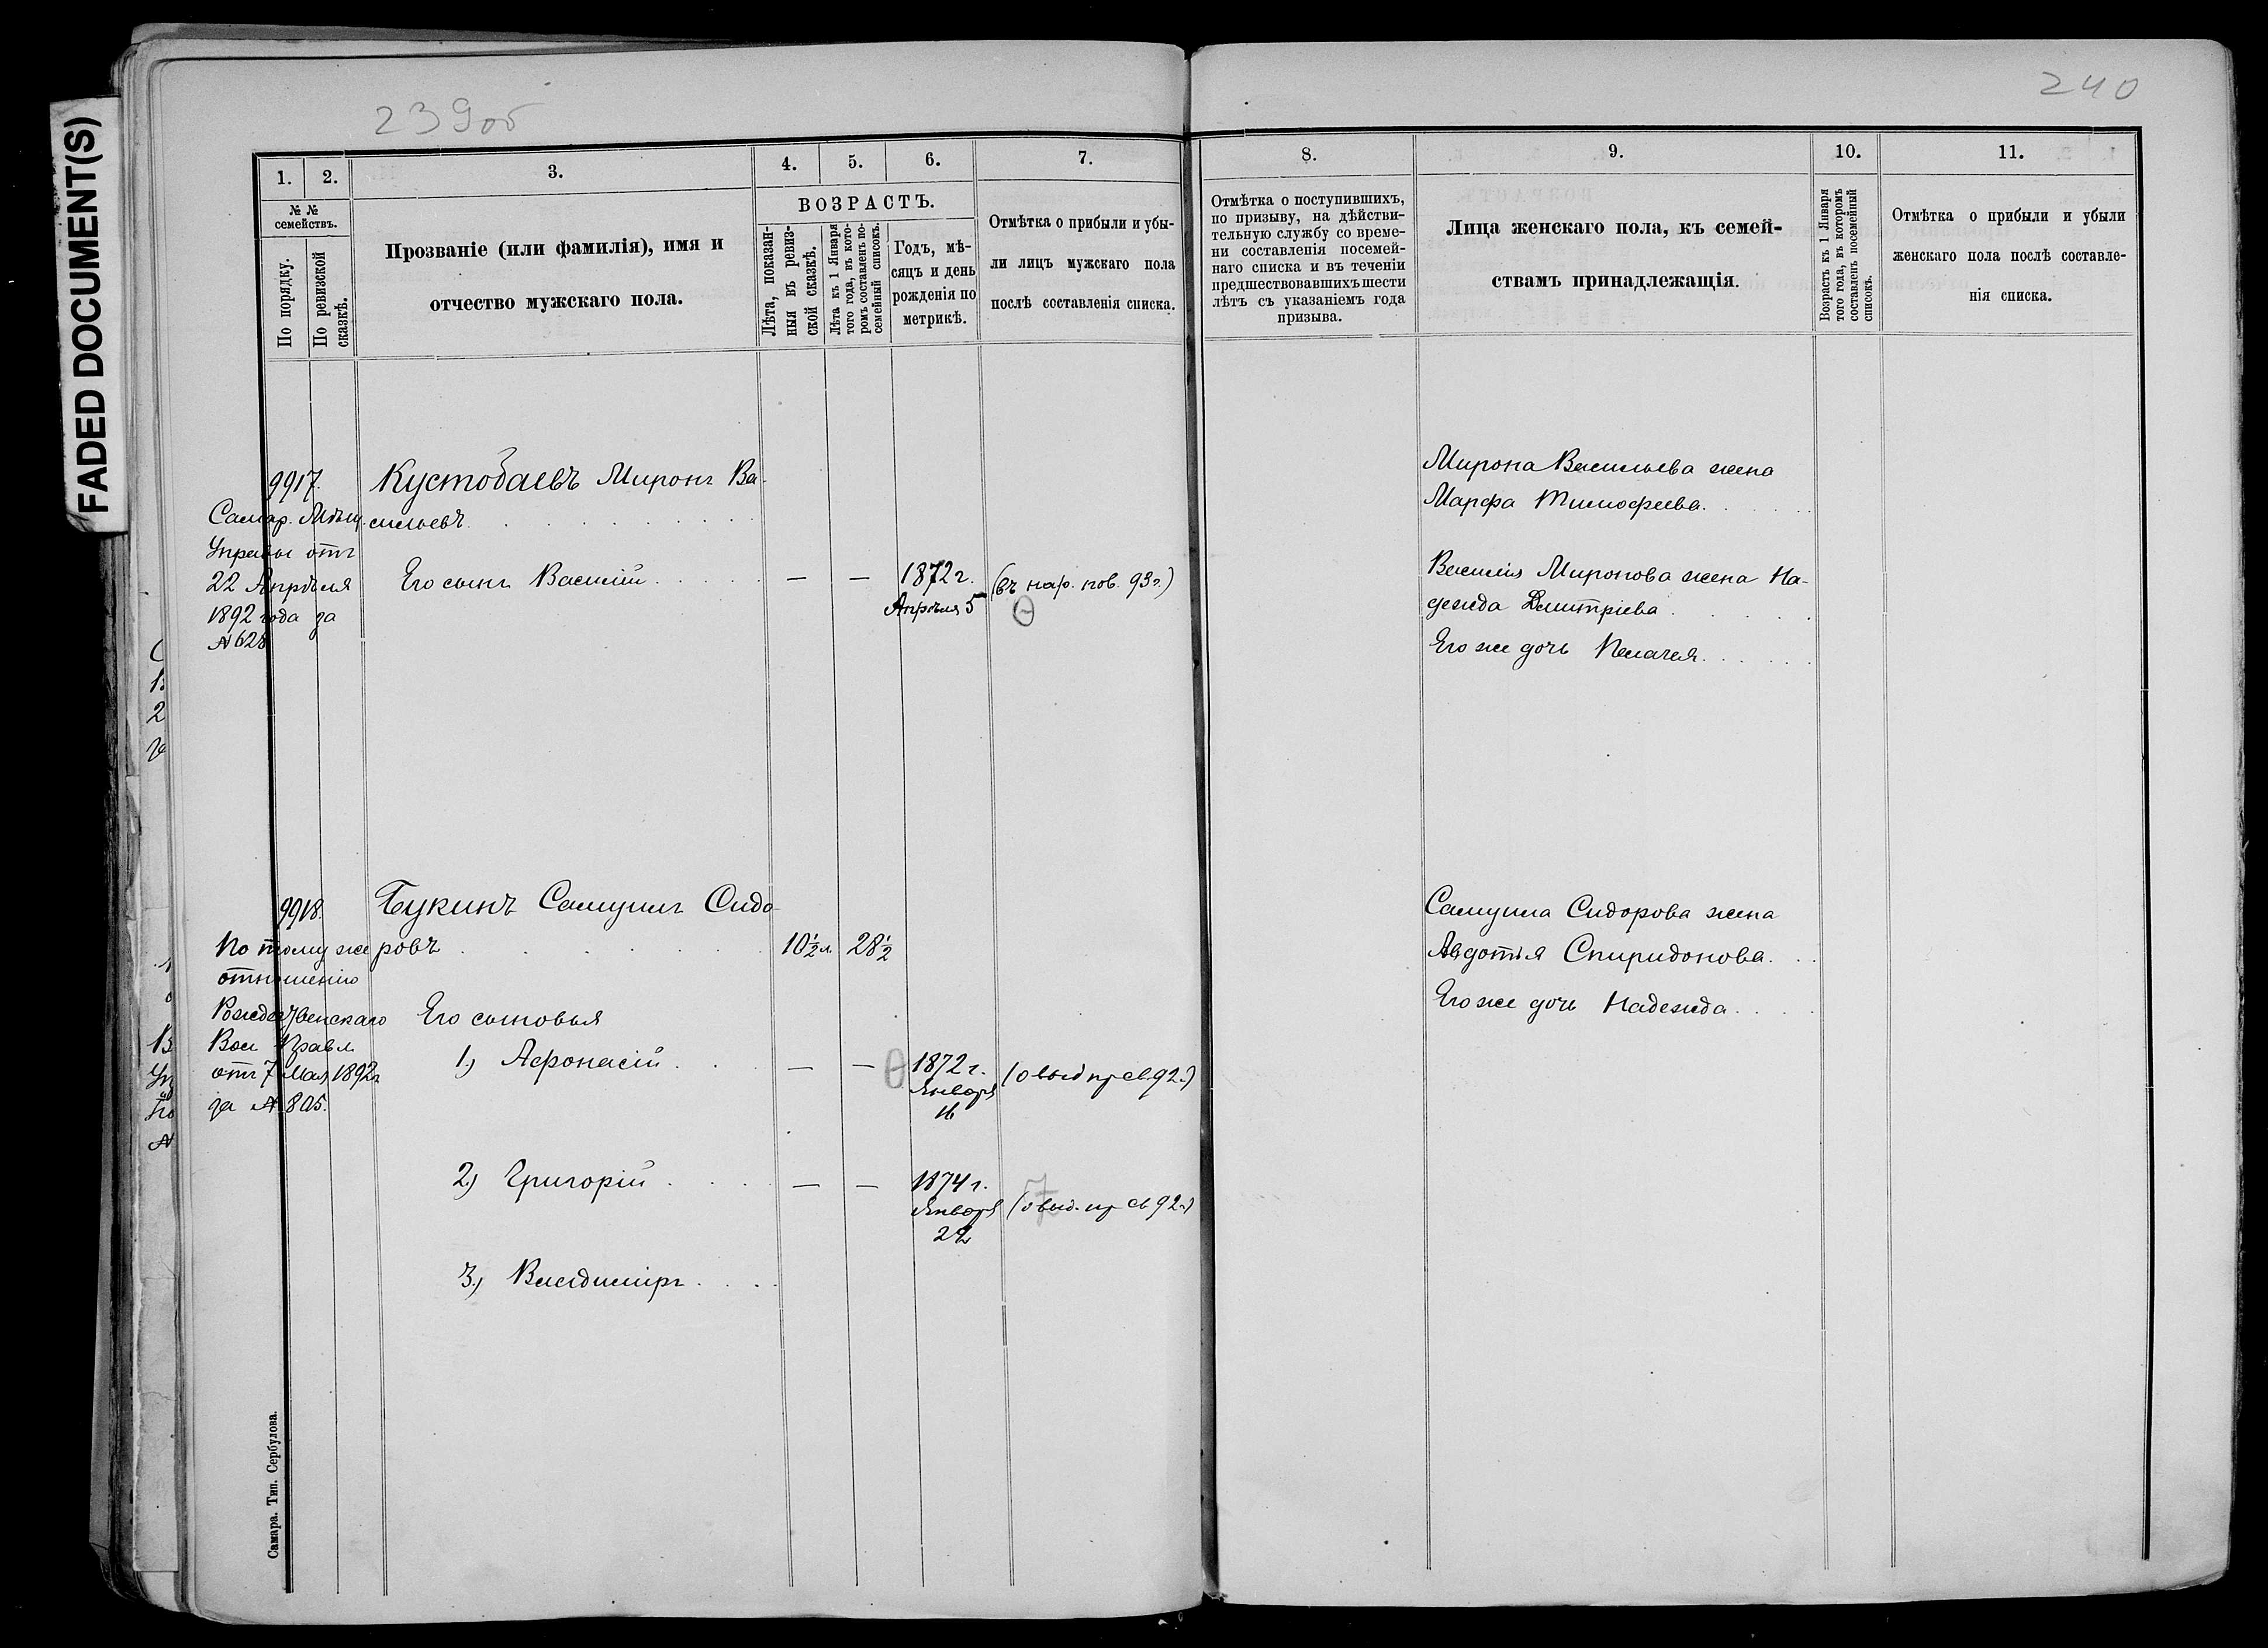 FADED DOCUMENT(S)
239об
240
1. 2. 3. 4. 5. 6. 7.
№ №
семействъ.
По порядку.
По ревизской
сказкѣ.
Прозваніе (или фамилія), имя и
отчество мужскаго пола.
ВОЗРАСТЪ.
Лѣта, показан-
ныя въ ревиз-
ской сказкѣ.
Лѣта къ 1 Января
того года, въ кото-
ромъ составленъ по-
семейный списокъ.
Годъ, мѣ-
сяцъ и день
рожденія по
метрикѣ.
Отмѣтка о прибыли и убы-
ли лицъ мужскаго пола
послѣ составленія списка.
9917.
Самар. Мѣщ.
Управы отъ
22 Апрѣля
1892 года за
№ 628
Кустобаевъ Миронъ Ва-
сильевъ
Его сынъ Василій
— — 1872 г.
Апрѣля 5
(въ нар. пов. 93 г.)
9918.
По тому же
отношенію
Рождественскаго
Вол Правл
отъ 7 Мая 1892 г
за № 805.
Букинъ Самуилъ Сидо-
ровъ
10½ л. 28½
Его сыновья
1) Афонасій
— — 1872 г.
Января
16
(о выд пр св 92 г.)
2) Григорій
— — 1874 г.
Января
22
(о выд. пр св 92 г.)
3) Владиміръ
Самара. Тип. Сербулова.
8. 9. 10. 11.
Отмѣтка о поступившихъ,
по призыву, на дѣйстви-
тельную службу со време-
ни составленія посемей-
наго списка и въ теченіи
предшествовавшихъ шести
лѣтъ съ указаніемъ года
призыва.
Лица женскаго пола, къ семей-
ствамъ принадлежащія.
Возрастъ къ 1 Января
того года, въ которомъ
составленъ посемейный
списокъ.
Отмѣтка о прибыли и убыли
женскаго пола послѣ составле-
нія списка.
Мирона Васильева жена
Марфа Тимофеева.
Василія Миронова жена На-
дежда Дмитріева
Его же дочь Пелагея
Самуила Сидорова жена
Авдотья Спиридонова.
Его же дочь Надежда